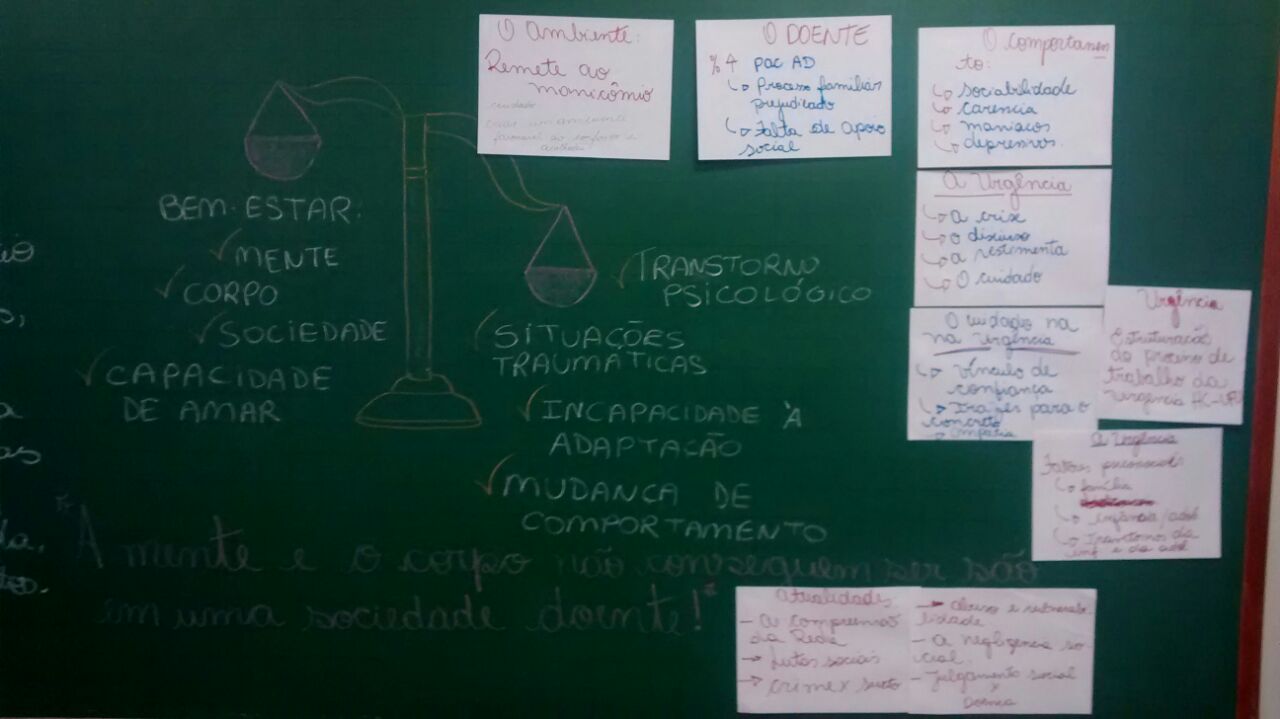 BEM-ESTAR.
✓ MENTE
✓ CORPO
✓ SOCIEDADE
✓ CAPACIDADE
DE AMAR
✓ TRANSTORNO
PSICOLÓGICO
✓ SITUAÇÕES
TRAUMÁTICAS
✓ INCAPACIDADE À
ADAPTAÇÃO
✓ MUDANÇA DE
COMPORTAMENTO
"A mente e o corpo não conseguem ser são
em uma sociedade doente!"
O Ambiente:
Remete ao
manicômio
cuidado
O DOENTE
pac AD
↳ Processo familiar
prejudicado
↳ Falta de apoio
social
O comportamen
to:
↳ sociabilidade
↳ carencia
↳ maniacos
↳ depressivos.
A Urgência
↳ a crise
↳ o discurso
↳ a vestimenta
↳ O cuidado
O cuidado na
na urgência
↳ Vínculo de
confiança
↳ Trazer para o
concreto
↳ empatia
Urgência
Estruturação
do processo de
trabalho da
urgência HC-
A Urgência
Fatores
↳ família
↳ infância/adol
↳ Transtornos da
inf e da adol
Atualidades
- A compreensão
da Rede
→ Lutas sociais
→ crime x surto
→ abuso e vulnerabi
lidade
- A negligência so
cial.
- Julgamento social
x
Doença